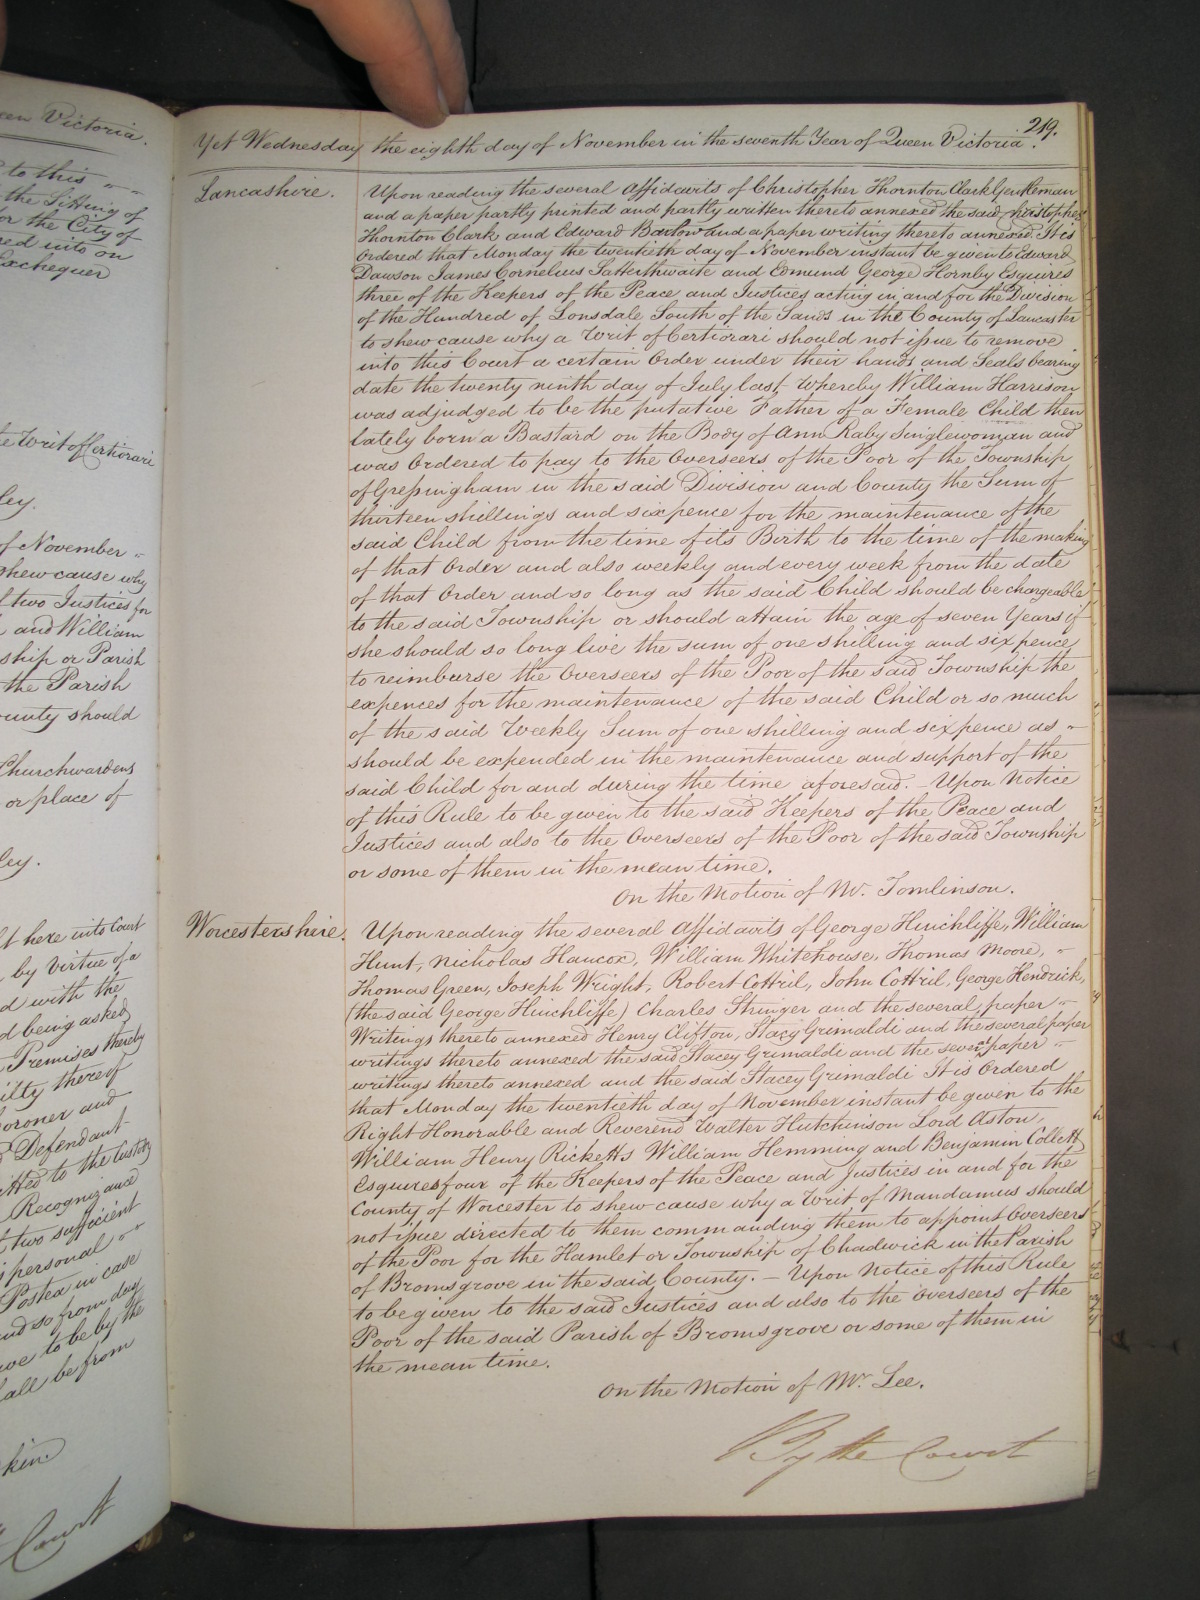 een Victoria.
to this
the Sitting of
or the City of
red into on
Exchequer
Writ of Certiorari
ley.
of November
shew cause why
two Justices for
and William
ship or Parish
the Parish
ounty should
Churchwardens
or place of
ley.
t here into Court
by Virtue of a
d with the
d being asked
Premises thereby
ilty thereof
oroner and
Defendant
itted to the Custody
Recognizance
two sufficient
personal
Postea in case
and so from day
ave to be by the
all be from
kin
Court
219.
Yet Wednesday the eighth day of November in the seventh Year of Queen Victoria.
Lancashire. Upon reading the several Affidavits of Christopher Thornton Clark Gentleman
and a paper partly printed and partly written thereto annexed the said Christopher
Thornton Clark and Edward Barlow and a paper writing thereto annexed. It is
Ordered that Monday the twentieth day of November instant be given to Edward
Dawson James Cornelius Satterthwaite and Edmund George Hornby Esquires
three of the Keepers of the Peace and Justices acting in and for the Division
of the Hundred of Lonsdale South of the Sands in the County of Lancaster
to shew cause why a Writ of Certiorari should not issue to remove
into this Court a certain Order under their hands and Seals bearing
date the twenty ninth day of July last Whereby William Harrison
was adjudged to be the putative Father of a Female Child then
lately born a Bastard on the Body of Ann Raby Singlewoman and
was Ordered to pay to the Overseers of the Poor of the Township
of Gressingham in the said Division and County the Sum of
thirteen shillings and sixpence for the maintenance of the
said Child from the time of its Birth to the time of the making
of that Order and also weekly and every week from the date
of that Order and so long as the said Child should be chargeable
to the said Township or should attain the age of seven Years if
she should so long live the sum of one shilling and six pence
to reimburse the Overseers of the Poor of the said Township the
expences for the maintenance of the said Child or so much
of the said Weekly Sum of one shilling and sixpence as
should be expended in the maintenance and support of the
said Child for and during the time aforesaid. — Upon Notice
of this Rule to be given to the said Keepers of the Peace and
Justices and also to the Overseers of the Poor of the said Township
or some of them in the mean time.
On the Motion of Mr. Tomlinson.
Worcestershire. Upon reading the several Affidavits of George Hinchliffe, William
Hunt, Nicholas Hancox, William Whitehouse, Thomas Moore,
Thomas Green, Joseph Wright, Robert Cottril, John Cottril, George Hendrick,
(the said George Hinchliffe) Charles Stringer and the several paper
Writings thereto annexed Henry Clifton, Stacey Grimaldi and the several paper
writings thereto annexed the said Stacey Grimaldi and the several paper
writings thereto annexed and the said Stacey Grimaldi It is Ordered
that Monday the twentieth day of November instant be given to the
Right Honorable and Reverend Walter Hutchinson Lord Aston,
William Henry Ricketts William Hemming and Benjamin Collett
Esquires four of the Keepers of the Peace and Justices in and for the
County of Worcester to shew cause why a Writ of Mandamus should
not issue directed to them commanding them to appoint Overseers
of the Poor for the Hamlet or Township of Chadwick in the Parish
of Bromsgrove in the said County. — Upon Notice of this Rule
to be given to the said Justices and also to the Overseers of the
Poor of the said Parish of Bromsgrove or some of them in
the mean time.
On the Motion of Mr. Lee.
By the Court